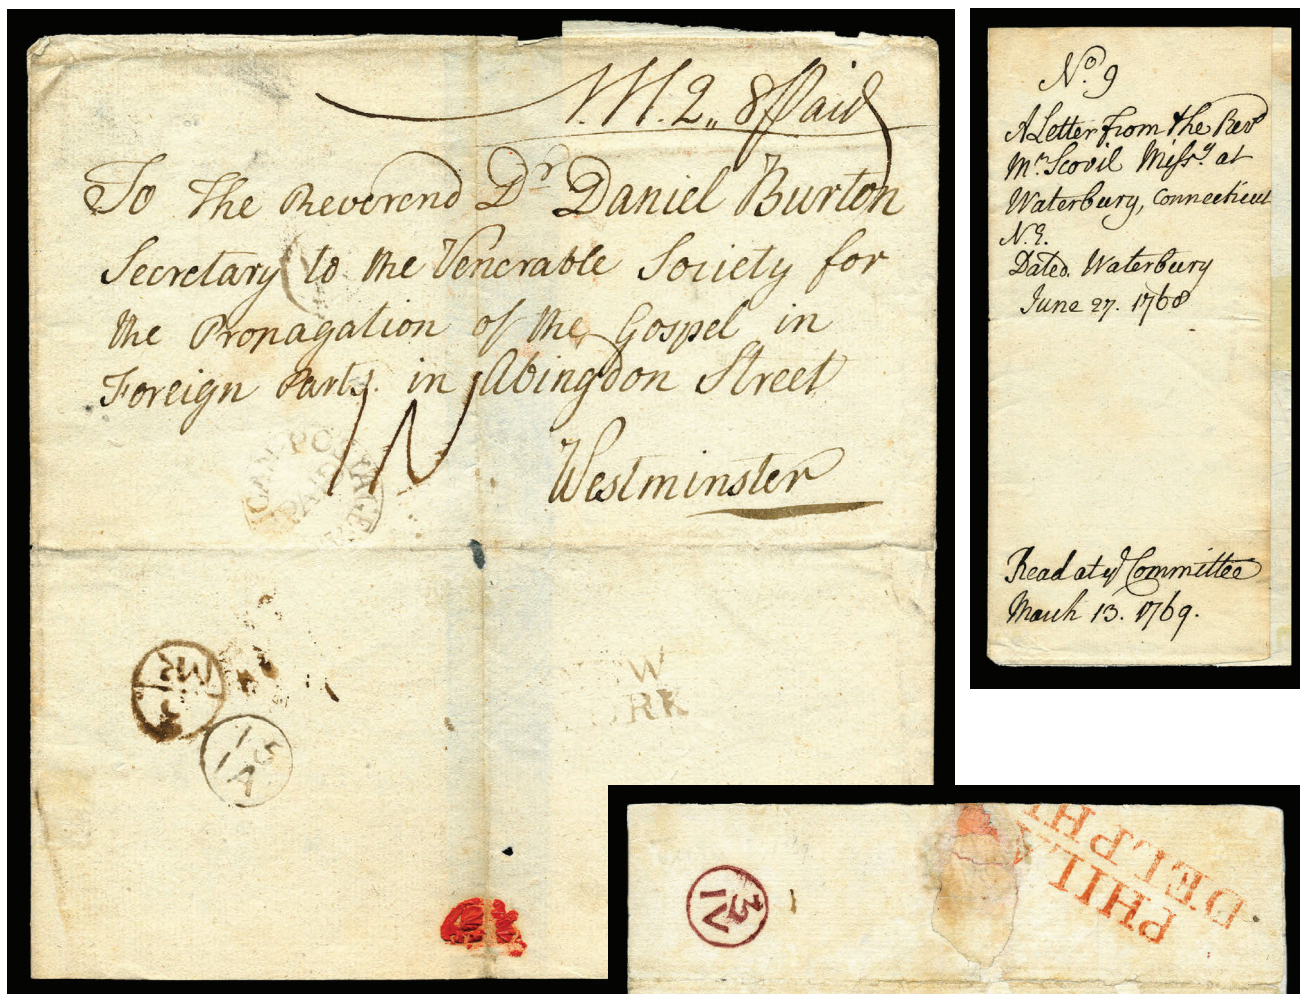 M. 2,, 8 Paid
To the Reverend Dr Daniel Burton
Secretary to the Venerable Society for
the Propagation of the Gospel in
Foreign Parts. in Abingdon Street
Westminster
PAID
MR
15
IA
W
RK
No. 9
A Letter from the Revd
Mr. Scovil Missy. at
Waterbury, Connecticut
N.E.
Dated. Waterbury
June 27. 1768
Read at ye Committee
March 13. 1769.
PHILA
DELPHI